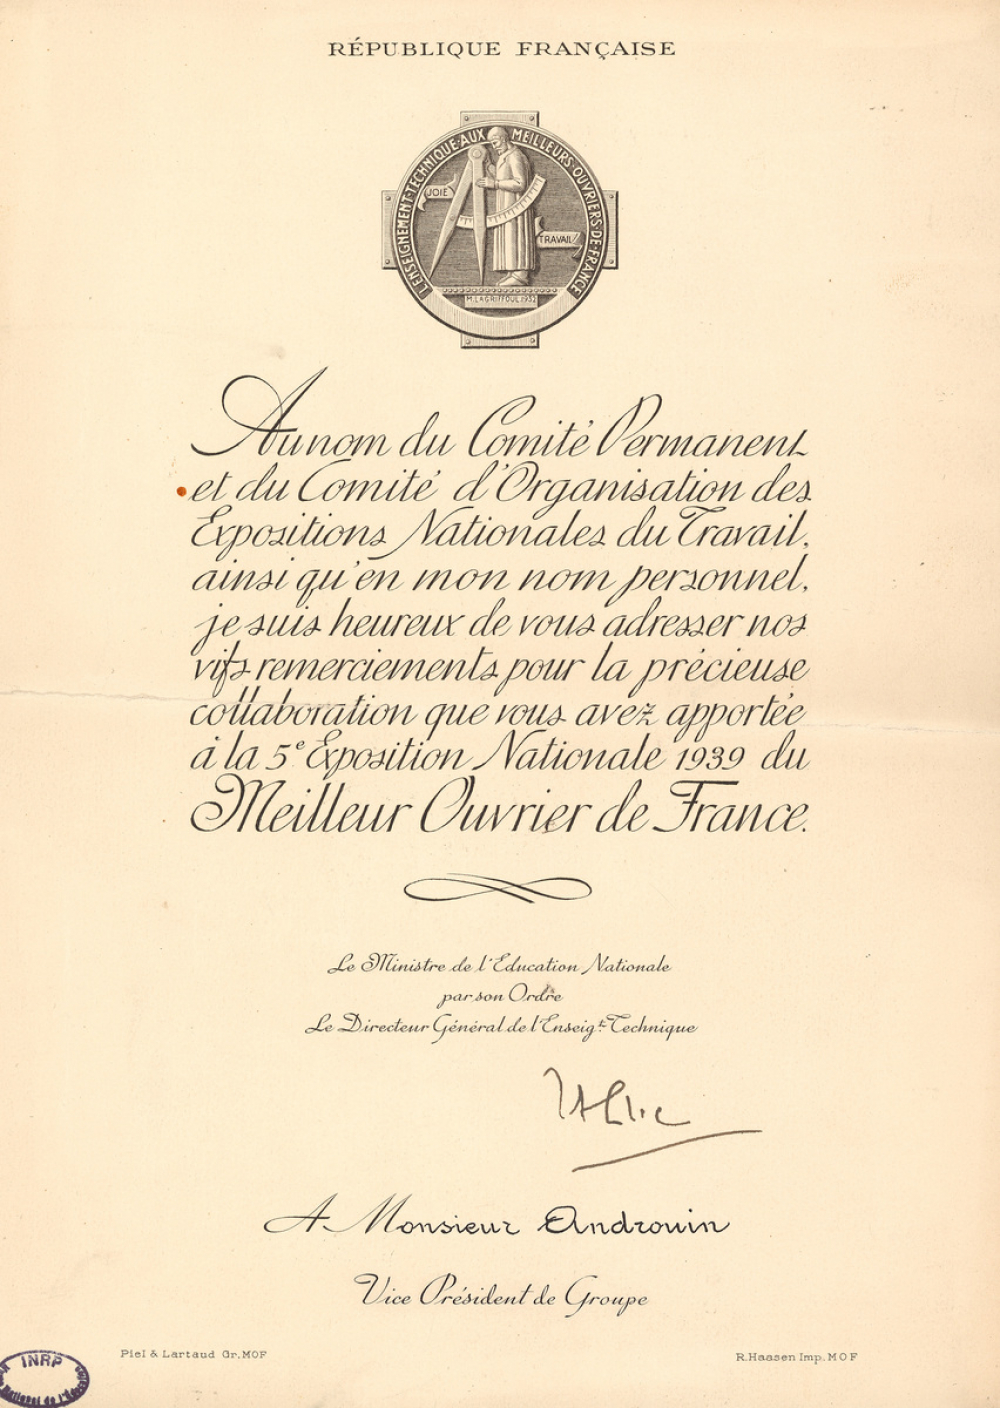 RÉPUBLIQUE FRANÇAISE
L'ENSEIGNEMENT·TECHNIQUE·AUX MEILLEURS·OUVRIERS·DE·FRANCE
JOIE
TRAVAIL
M.LAGRIFFOUL.1932
Au nom du Comité Permanent
et du Comité d'Organisation des
Expositions Nationales du Travail,
ainsi qu'en mon nom personnel,
je suis heureux de vous adresser nos
vifs remerciements pour la précieuse
collaboration que vous avez apportée
à la 5e Exposition Nationale 1939 du
Meilleur Ouvrier de France.
Le Ministre de l'Education Nationale
par son Ordre
Le Directeur Général de l'Enseig.t Technique
A Monsieur Androuin
Vice Président de Groupe
Piel & Lartaud Gr. MOF
R. Haasen Imp. MOF
INRP
National de l'